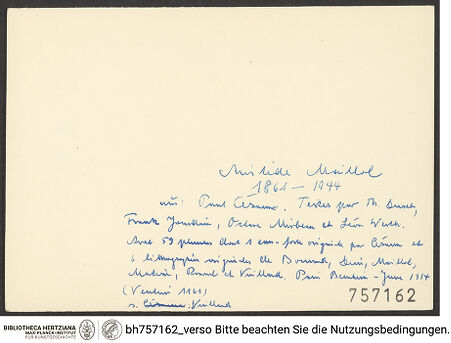 Aristide Maillol
1861 – 1944
aus: Paul Cézanne. Textes par Th. Duret,
Frank Jourdain, Octave Mirbeau et Léon Werth.
Avec 59 planches dont 1 eau-forte originale par Cézanne et
6 lithographies originales de Bonnard, Denis, Maillol,
Matisse, Roussel et Vuillard. Paris Bernheim - Jeune 1914
(Venturi 1161)
s. Cézanne. Vuillard
757162
BIBLIOTHECA HERTZIANA
MAX-PLANCK-INSTITUT
FÜR KUNSTGESCHICHTE
bh757162_verso Bitte beachten Sie die Nutzungsbedingungen.